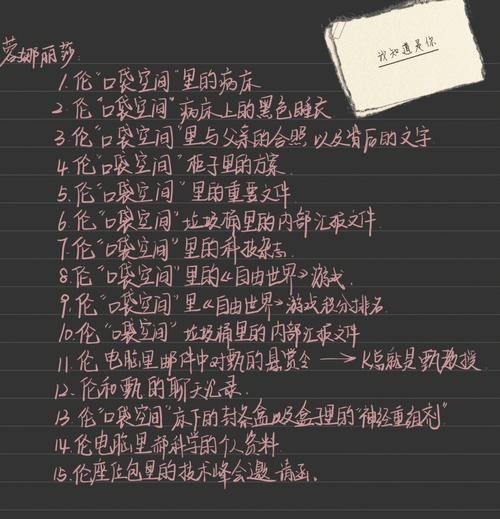 我知道是你
蒙娜丽莎:
1.伦“口袋空间”里的病床
2.伦“口袋空间”病床上的黑色睡衣
3.伦“口袋空间”里与父亲的合照以及背后的文字.
4.伦“口袋空间”柜子里的方案.
5.伦“口袋空间”里的重要文件
6.伦“口袋空间”垃圾桶里的内部汇报文件.
7.伦“口袋空间”里的科技杂志.
8.伦“口袋空间”里的《自由世界》游戏.
9.伦“口袋空间”里《自由世界》游戏积分排名.
10.伦“口袋空间”垃圾桶里的内部汇报文件
11.伦电脑里邮件中对甄的悬赏令 → K后就是甄教授.
12.伦和甄的聊天记录.
13.伦“口袋空间”床下的封条盒以及盒子里的“神经重组剂”
14.伦电脑里郝科学的个人资料.
15.伦座位包里的技术峰会邀请函.